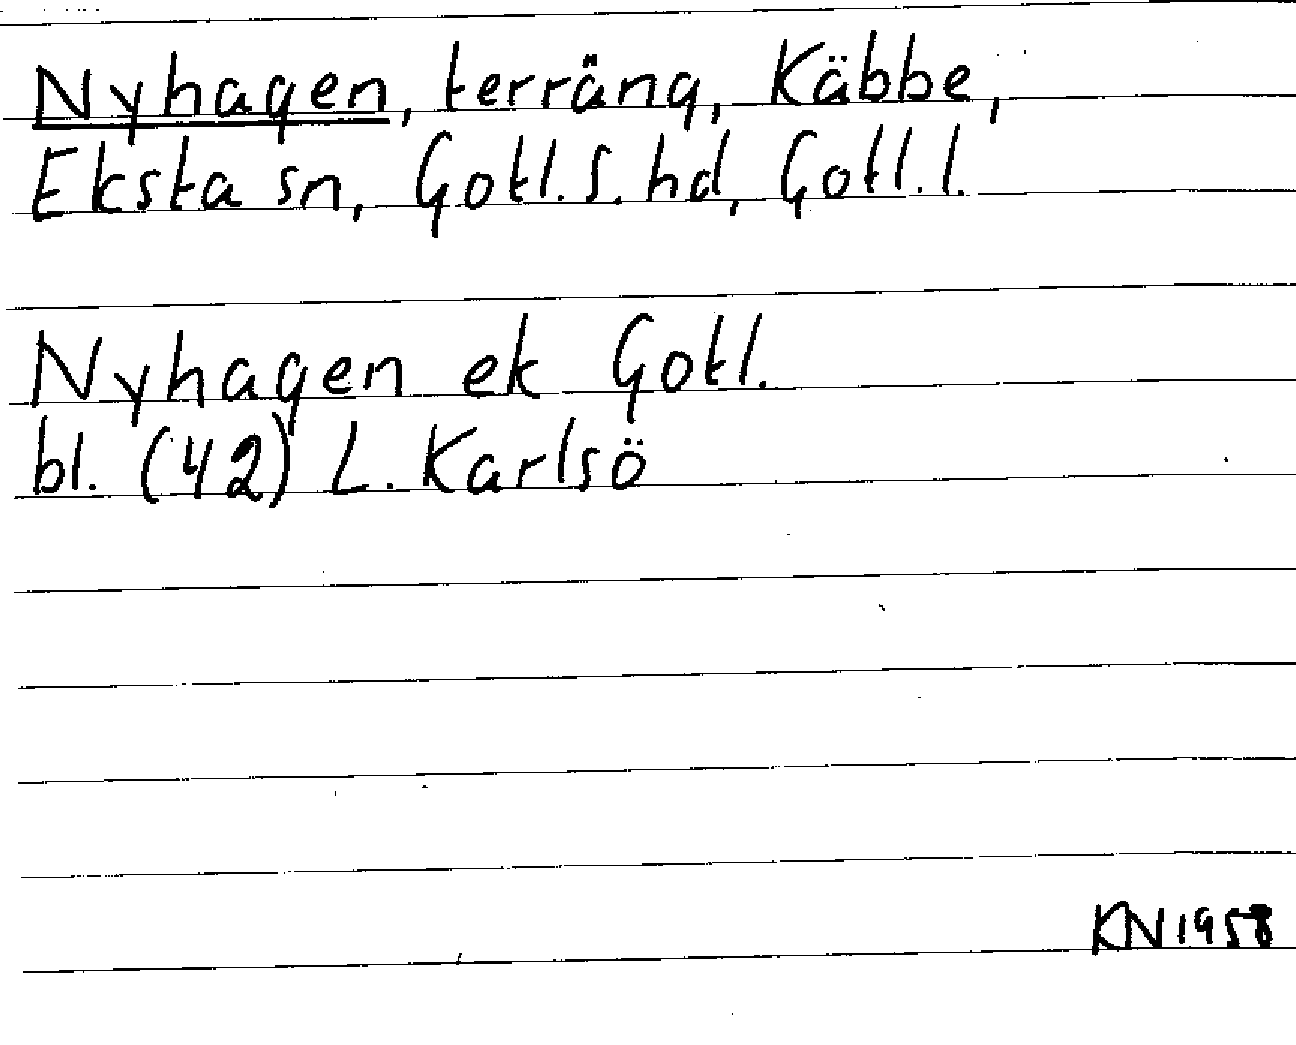 Nyhagen, terräng, Käbbe,
Eksta sn, Gotl. S. hd, Gotl. l.
Nyhagen ek Gotl.
bl. (42) L. Karlsö
KN 1958